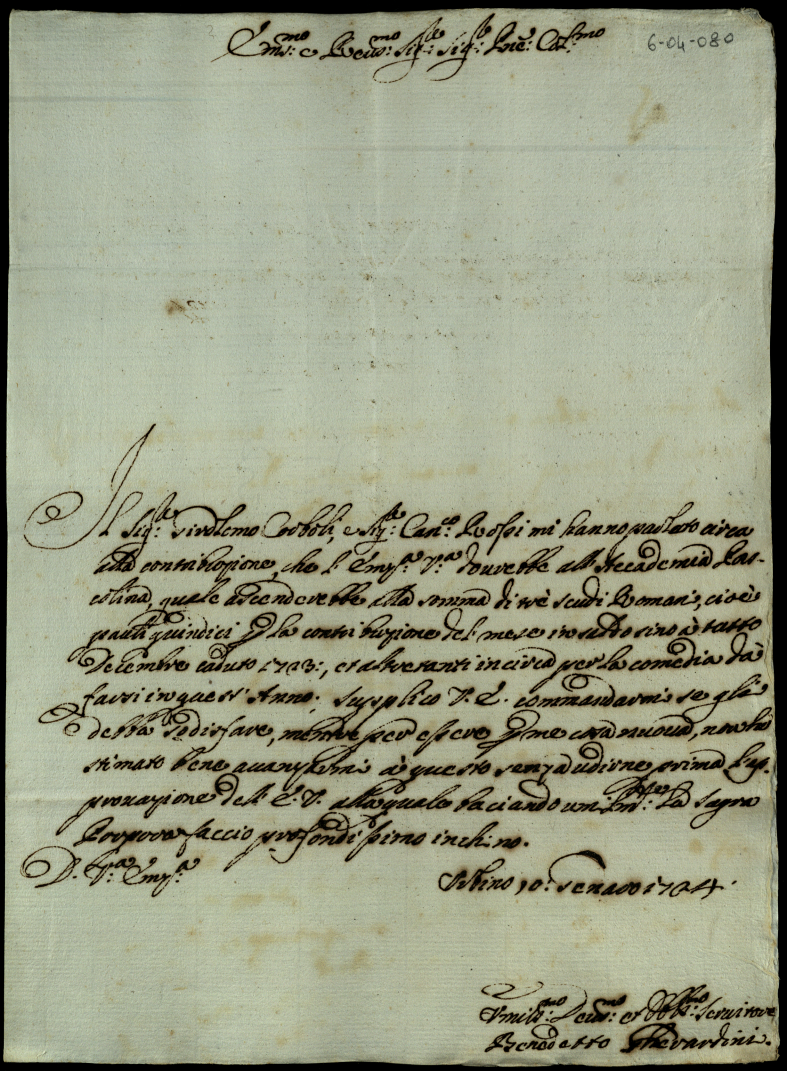 6-04-080
Em.mo e Reu.mo Sig.re Sig.re Pnē: Col.mo
Il Sig.re Girolemo Corboli, e Sig.re Can.co Rossi mi hanno parlato circa
alla contribuzione, che l' Em.a V.a dourebbe all' Accademia Pas-
colina, quale ascenderebbe alla somma di trè scudi Romani, cioè
pauli quindici p la contribuzione del mese in sino à tutto
Decembre caduto 1723:, et altretanti in circa per la comedia da
farsi in quest' Anno; supplico V. E. commandarmi se gli
debba sodisfare, mentre per essere p me cosa nuoua, non hò
stimato bene auanzarmi à questo senza udirne prima l' ap-
prouazione dell' E. V. alla quale baciando um.te la sagra
Porpora faccio profondissimo inchino.
D. V.a Em.a
Urbino 10: Genaro 1724.
Umiliss.mo Deuo.mo et Obl.mo Seruitore
Benedetto Gherardini.